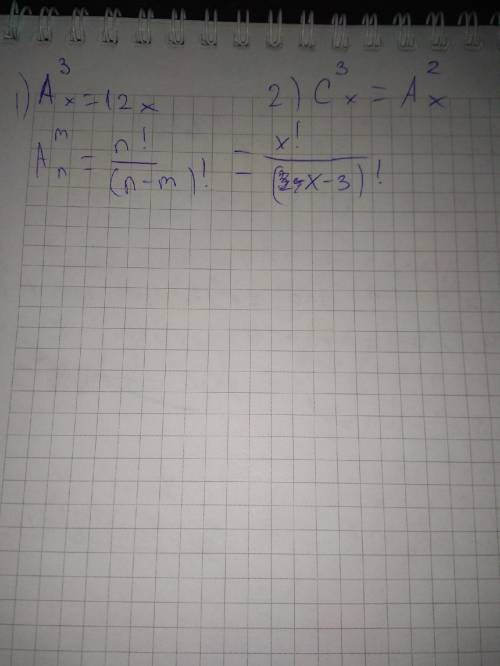 1) A³ₓ = 12x 2) C³ₓ = A²ₓ
Aᵐₙ = n! / (n-m)! = x! / (x-3)!